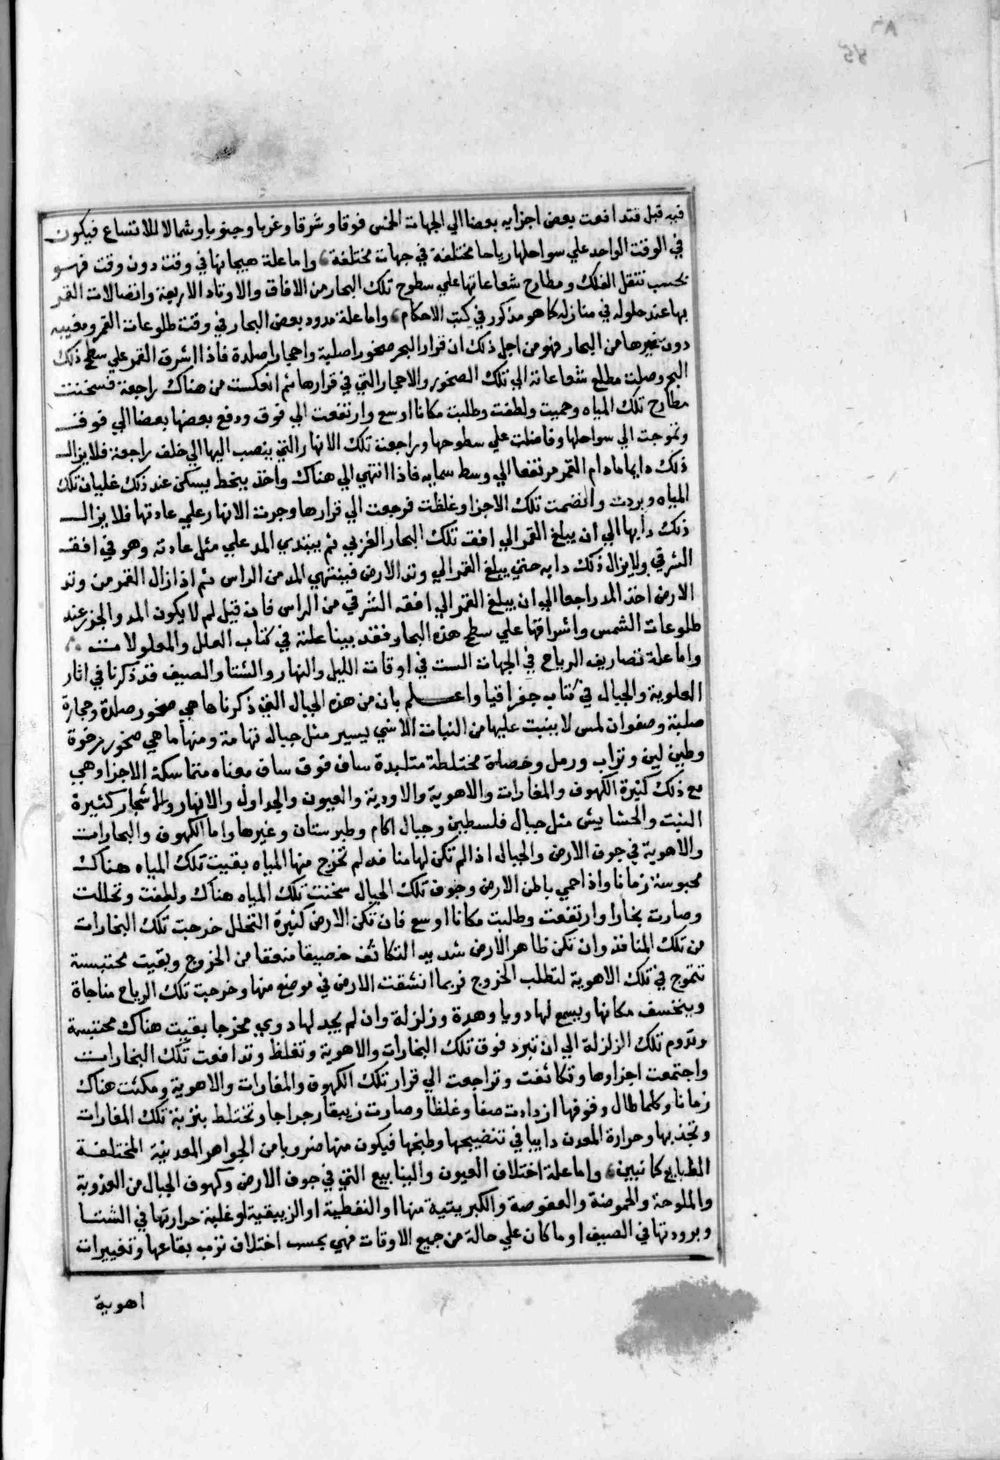 فيه قبل فتدافعت بعض اجزايه بعضا الي الجهات الخمس فوقا وشرقا وغربا وجنوبا وشمالا للاتساع فيكون
في الوقت الواحد علي سواحلها رياحا مختلفة في جهات مختلفة واما علة هيجانها في وقت دون وقت فهو
بحسب تنقل الفلك ومطارح شعاعاتها علي سطوح تلك البحار من الافاق والاوتاد الاربعة واتصالات القمر
بها عند حلوله في منازله كما هو مذكور في كتب الاحكام واما علة مدود بعض البحار في وقت طلوعات القمر ومغيبه
دون غيرها من البحار فهو من اجل ذلك ان قرار البحر صخور اصلبة واحجار اصلدة فاذا اشرق القمر علي سطح ذلك
البحر وصلت مطلع شعاعاته الي تلك الصخور والاحجار التي في قرارها ثم انعكست من هناك راجعة فسخنت
مطارح تلك المياه وحميت ولطفت وطلبت مكانا اوسع وارتفعت الي فوق ودفع بعضها بعضا الي فوق
وتموجت الي سواحلها وفاضلت علي سطوحها وراجعت تلك الانهار التي ينصب اليها الي خلف راجعة فلا يزال
ذلك دايها مادام القمر مرتفعا الي وسط سمايه فاذا انتهي الي هناك واخذ ينحط يسكن عند ذلك غليان تلك
المياه وبردت وانضمت تلك الاجزا وغلظت فرجعت الي قرارها وجرت الانهار علي عادتها فلا يزال
ذلك دابها الي ان يبلغ القمر الي افق تلك البحار الغربي ثم يبتدي المد علي مثل عادته وهو في افقه
الشرقي ولا يزال ذلك دابه حتي يبلغ القمر الي وتد الارض فينتهي المد من الراس ثم اذا زال القمر من وتد
الارض اخذ المد راجعا الي ان يبلغ القمر الي افقه الشرقي من الراس فان قيل لم لا يكون المد والجزر عند
طلوعات الشمس واشراقها علي سطح هذه البحار فقد بينا علته في كتاب العلل والمعلولات
واما علة تصاريف الرياح في الجهات الست في اوقات الليل والنهار والشتا والصيف قد ذكرنا في اثار
العلوية والجبال في كتاب جغرافيا واعلم بان من هذه الجبال التي ذكرناها هي صخور صلدة وحجارة
صلبة وصفوان لمس لا ينبت عليها من النبات الا شي يسير مثل جبال تهامة ومنها ما هي صخور رخوة
وطين لين وتراب ورمل وحصاة مختلطة متلبدة ساف فوق ساف متماسكة الاجزا وهي
مع ذلك كثيرة الكهوف والمغارات والاهوية والاودية والعيون والجداول والانهار والاشجار كثيرة
النبت والحشايش مثل جبال فلسطين وجبال اكام وطبرستان وغيرها واما الكهوف والبحارات
والاهوية في جوف الارض والجبال اذا لم تكن لها منافذ لم تخرج منها المياه بقيت تلك المياه هناك
محبوسة زمانا واذا حمي باطن الارض وجوف تلك الجبال سخنت تلك المياه هناك ولطفت وتحللت
وصارت بخارا وارتفعت وطلبت مكانا اوسع فان تكن الارض كثيرة التخلل خرجت تلك البخارات
من تلك المنافذ وان تكن ظاهر الارض شديد التكاثف حصيفا منعها من الخروج وبقيت محتبسة
تتموج في تلك الاهوية لتطلب الخروج فربما انشقت الارض في موضع منها وخرجت تلك الرياح مناجاة
وينخسف مكانها ويسمع لها دويا وهدة وزلزلة وان لم يجد لها دوي مخرجا بقيت هناك محتبسة
وتدوم تلك الزلزلة الي ان تبرد فوق تلك البخارات والاهوية وتغلظ وتدافعت تلك البخارات
واجتمعت اجزاوها وتكاثفت وتراجعت الي قرار تلك الكهوف والمغارات والاهوية ومكثت هناك
زمانا وكلما طال وقوفها ازدادت صفا وغلظا وصارت زيبقا رجراجا وتختلط بتربة تلك المغارات
وتجذبها وحرارة المعدن دايبا في تنضيجها وطبخها فيكون منها ضروبا من الجواهر المعدنية المختلفة
الطبايع كما نبين واما علة اختلاف العيون والينابيع التي في جوف الارض وكهوف الجبال من العذوبة
والملوحة والحموضة والعفوصة والكبريتية منها او النفطية او الزيبقية او غلبة حرارتها في الشتا
وبرودتها في الصيف او ما كان علي حالة من جميع الاوقات فهي بحسب اختلاف ترب بقاعها وتغييرات
اهوية